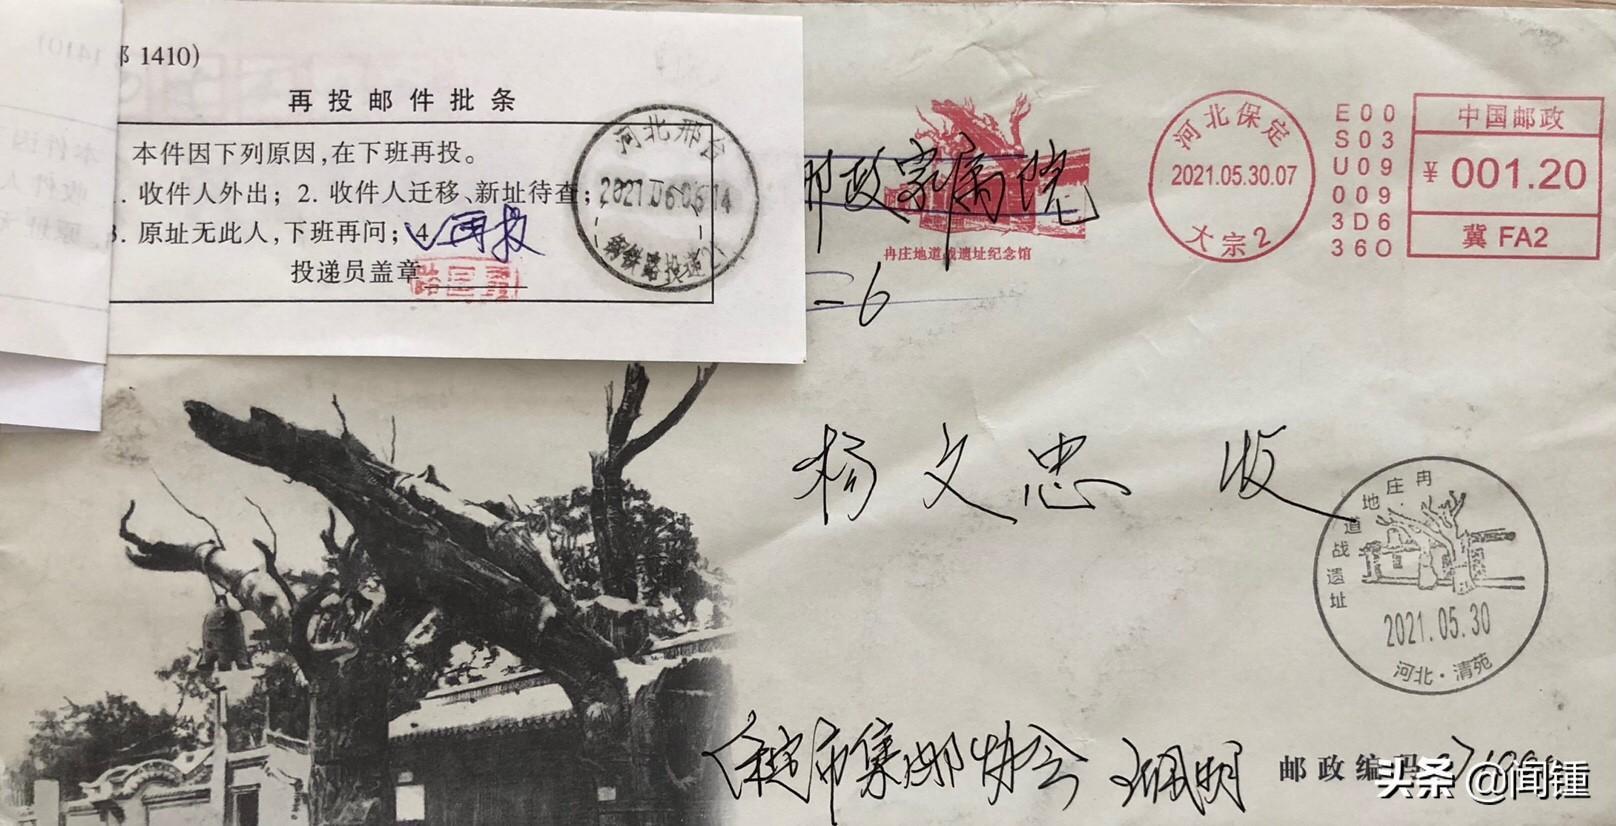 邮 1410)
再投邮件批条
本件因下列原因,在下班再投。
. 收件人外出; 2. 收件人迁移、新址待查;
3. 原址无此人,下班再问; 4. 再投
投递员盖章
河北邢台
2021.06.05.14
邮政家属院
-6
冉庄地道战遗址纪念馆
河北保定
2021.05.30.07
大宗2
E00
S03
U09
009
3D6
360
中国邮政
¥ 001.20
冀 FA2
杨文忠 收
冉庄地道战遗址
2021.05.30
河北·清苑
保定市集邮协会
邮政编码
头条 @闻锺